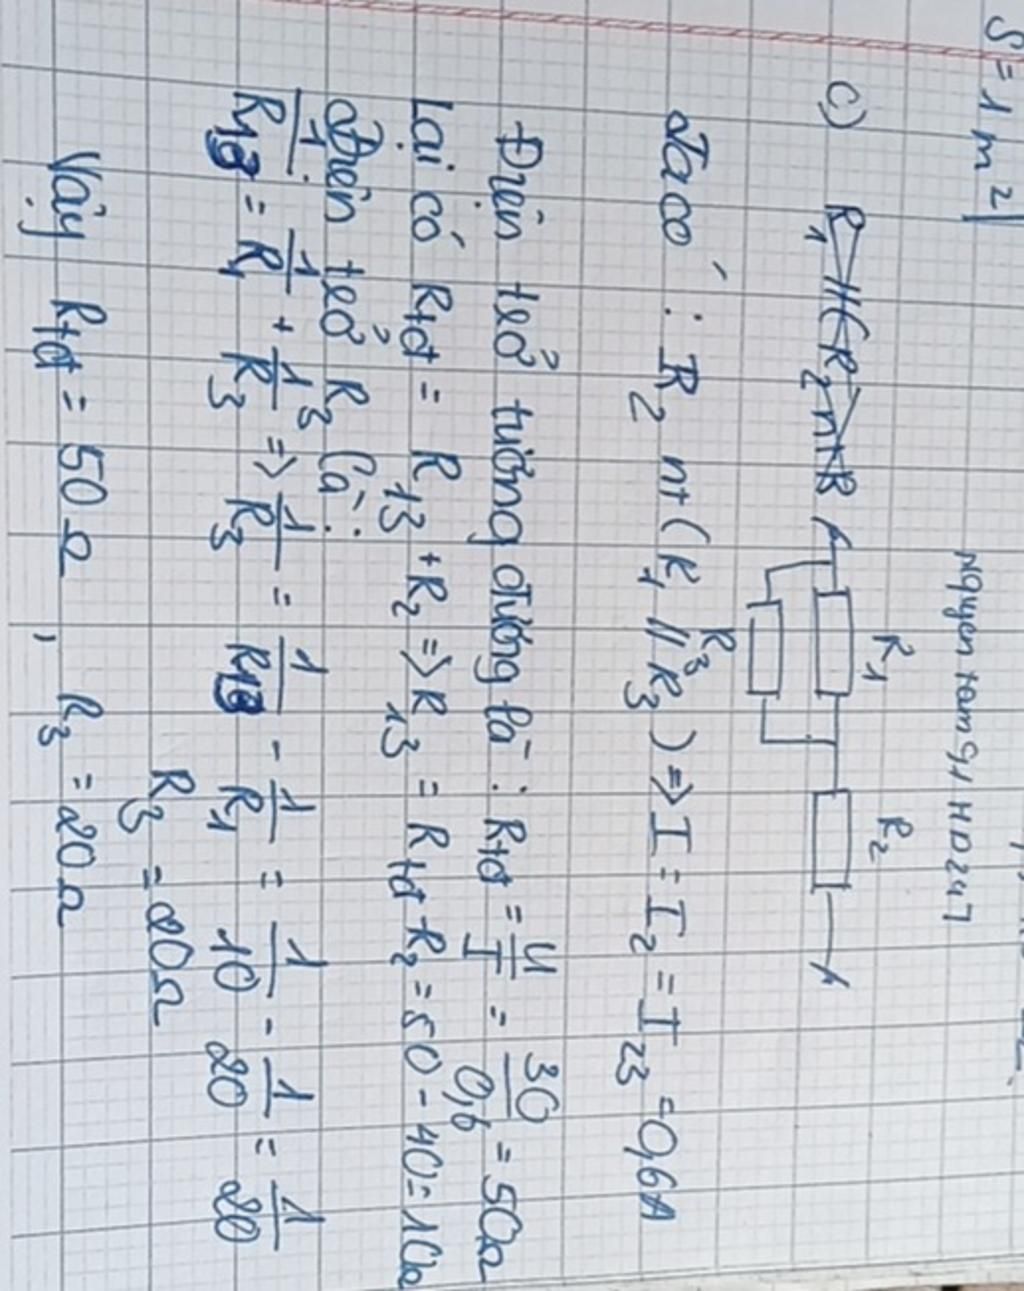 S = 1 m²
nguyentam94HD247
c) R₁ // (R₂ nt R
R₁ R₂
R₃
Ta có : R₂ nt (R₁ // R₃) => I = I₂ = I₂₃ = 0,6A
Điện trở tương đương là : Rtđ = U/I = 30/0,6 = 50Ω
Lại có Rtđ = R₁₃ + R₂ => R₁₃ = Rtđ - R₂ = 50 - 40 = 10Ω
Điện trở R₃ là :
1/R₁₃ = 1/R₁ + 1/R₃ => 1/R₃ = 1/R₁₃ - 1/R₁ = 1/10 - 1/20 = 1/20
R₃ = 20Ω
Vậy Rtđ = 50Ω , R₃ = 20Ω